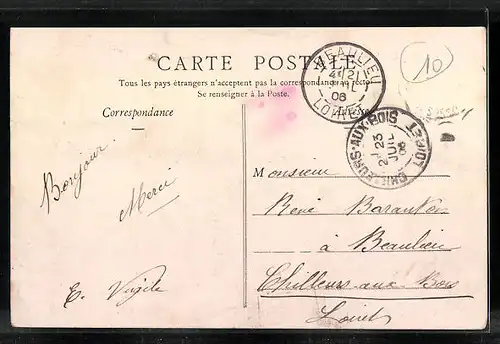 CARTE POSTALE
Tous les pays étrangers n'acceptent pas la correspondance au recto
Se renseigner à la Poste.
Correspondance
10
BEAULIEU
21
06
LOIRET
CHILLEURS-AUX-BOIS
23
JUIL
06
LOIRET
Bonjour
Merci
E. Virgile
Monsieur
René
à Beaulieu
Chilleurs-aux-Bois
Loiret